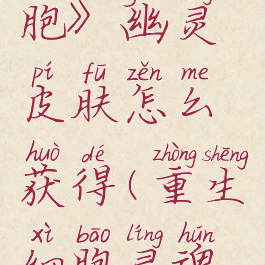 胞》幽灵
pí fū zěn me
皮肤怎么
huò dé zhòng shēng
获得(重生
xì bāo líng hún
细胞灵魂